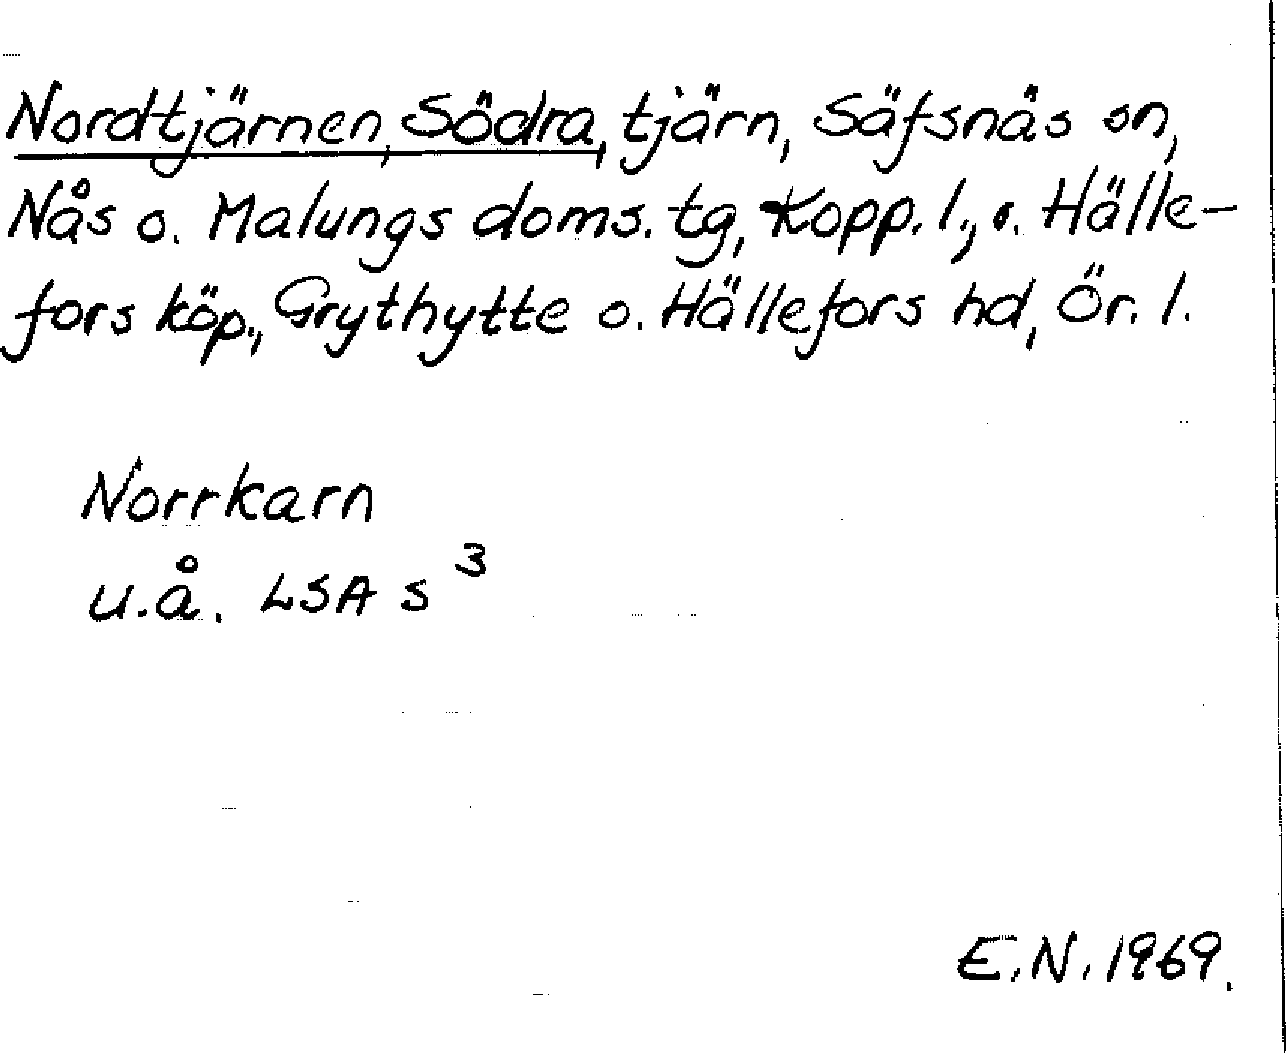 Nordtjärnen, Södra, tjärn, Säfsnäs sn,
Nås o. Malungs doms. tg, Kopp. l., o. Hälle-
fors köp., Grythytte o. Hällefors hd, Ör. l.
Norrkarn
u.å. LSA s 3
E.N. 1969.